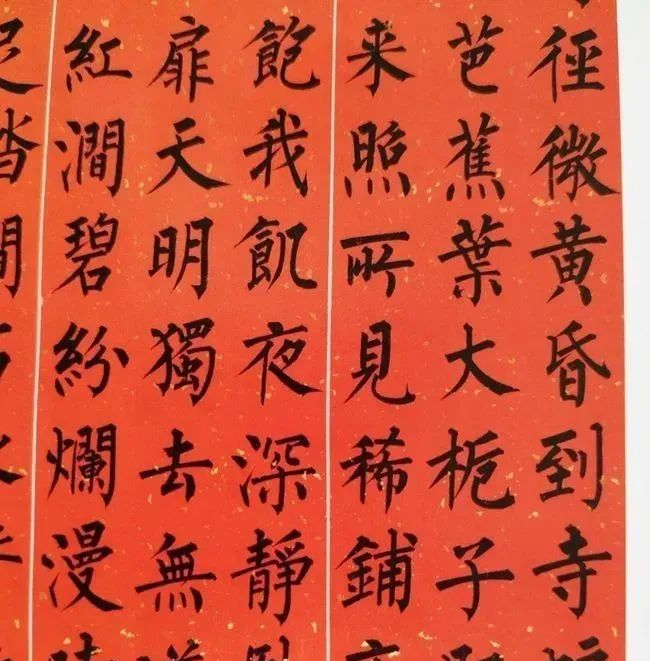 徑微黄昏到寺
芭蕉葉大栀子
来照所見稀鋪
飽我飢夜深靜
扉天明獨去無
紅澗碧紛爛漫
踏間